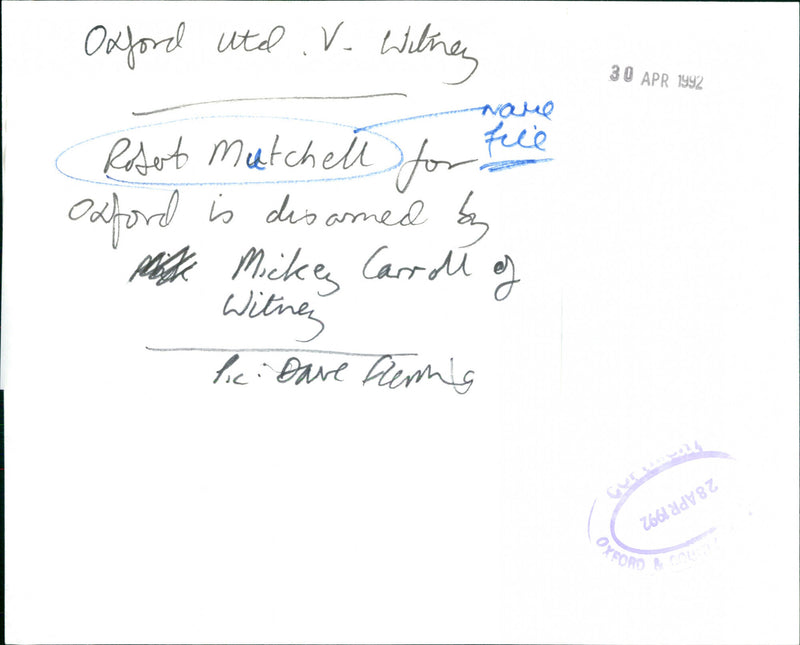 Oxford Utd. V. Witney
30 APR 1992
Name
File
Robert Mutchell for
Oxford is disarmed by
Mickey Carroll of
Witney
Pic: Dave Fleming
COPYRIGHT
28 APR 1992
OXFORD & COUNTY